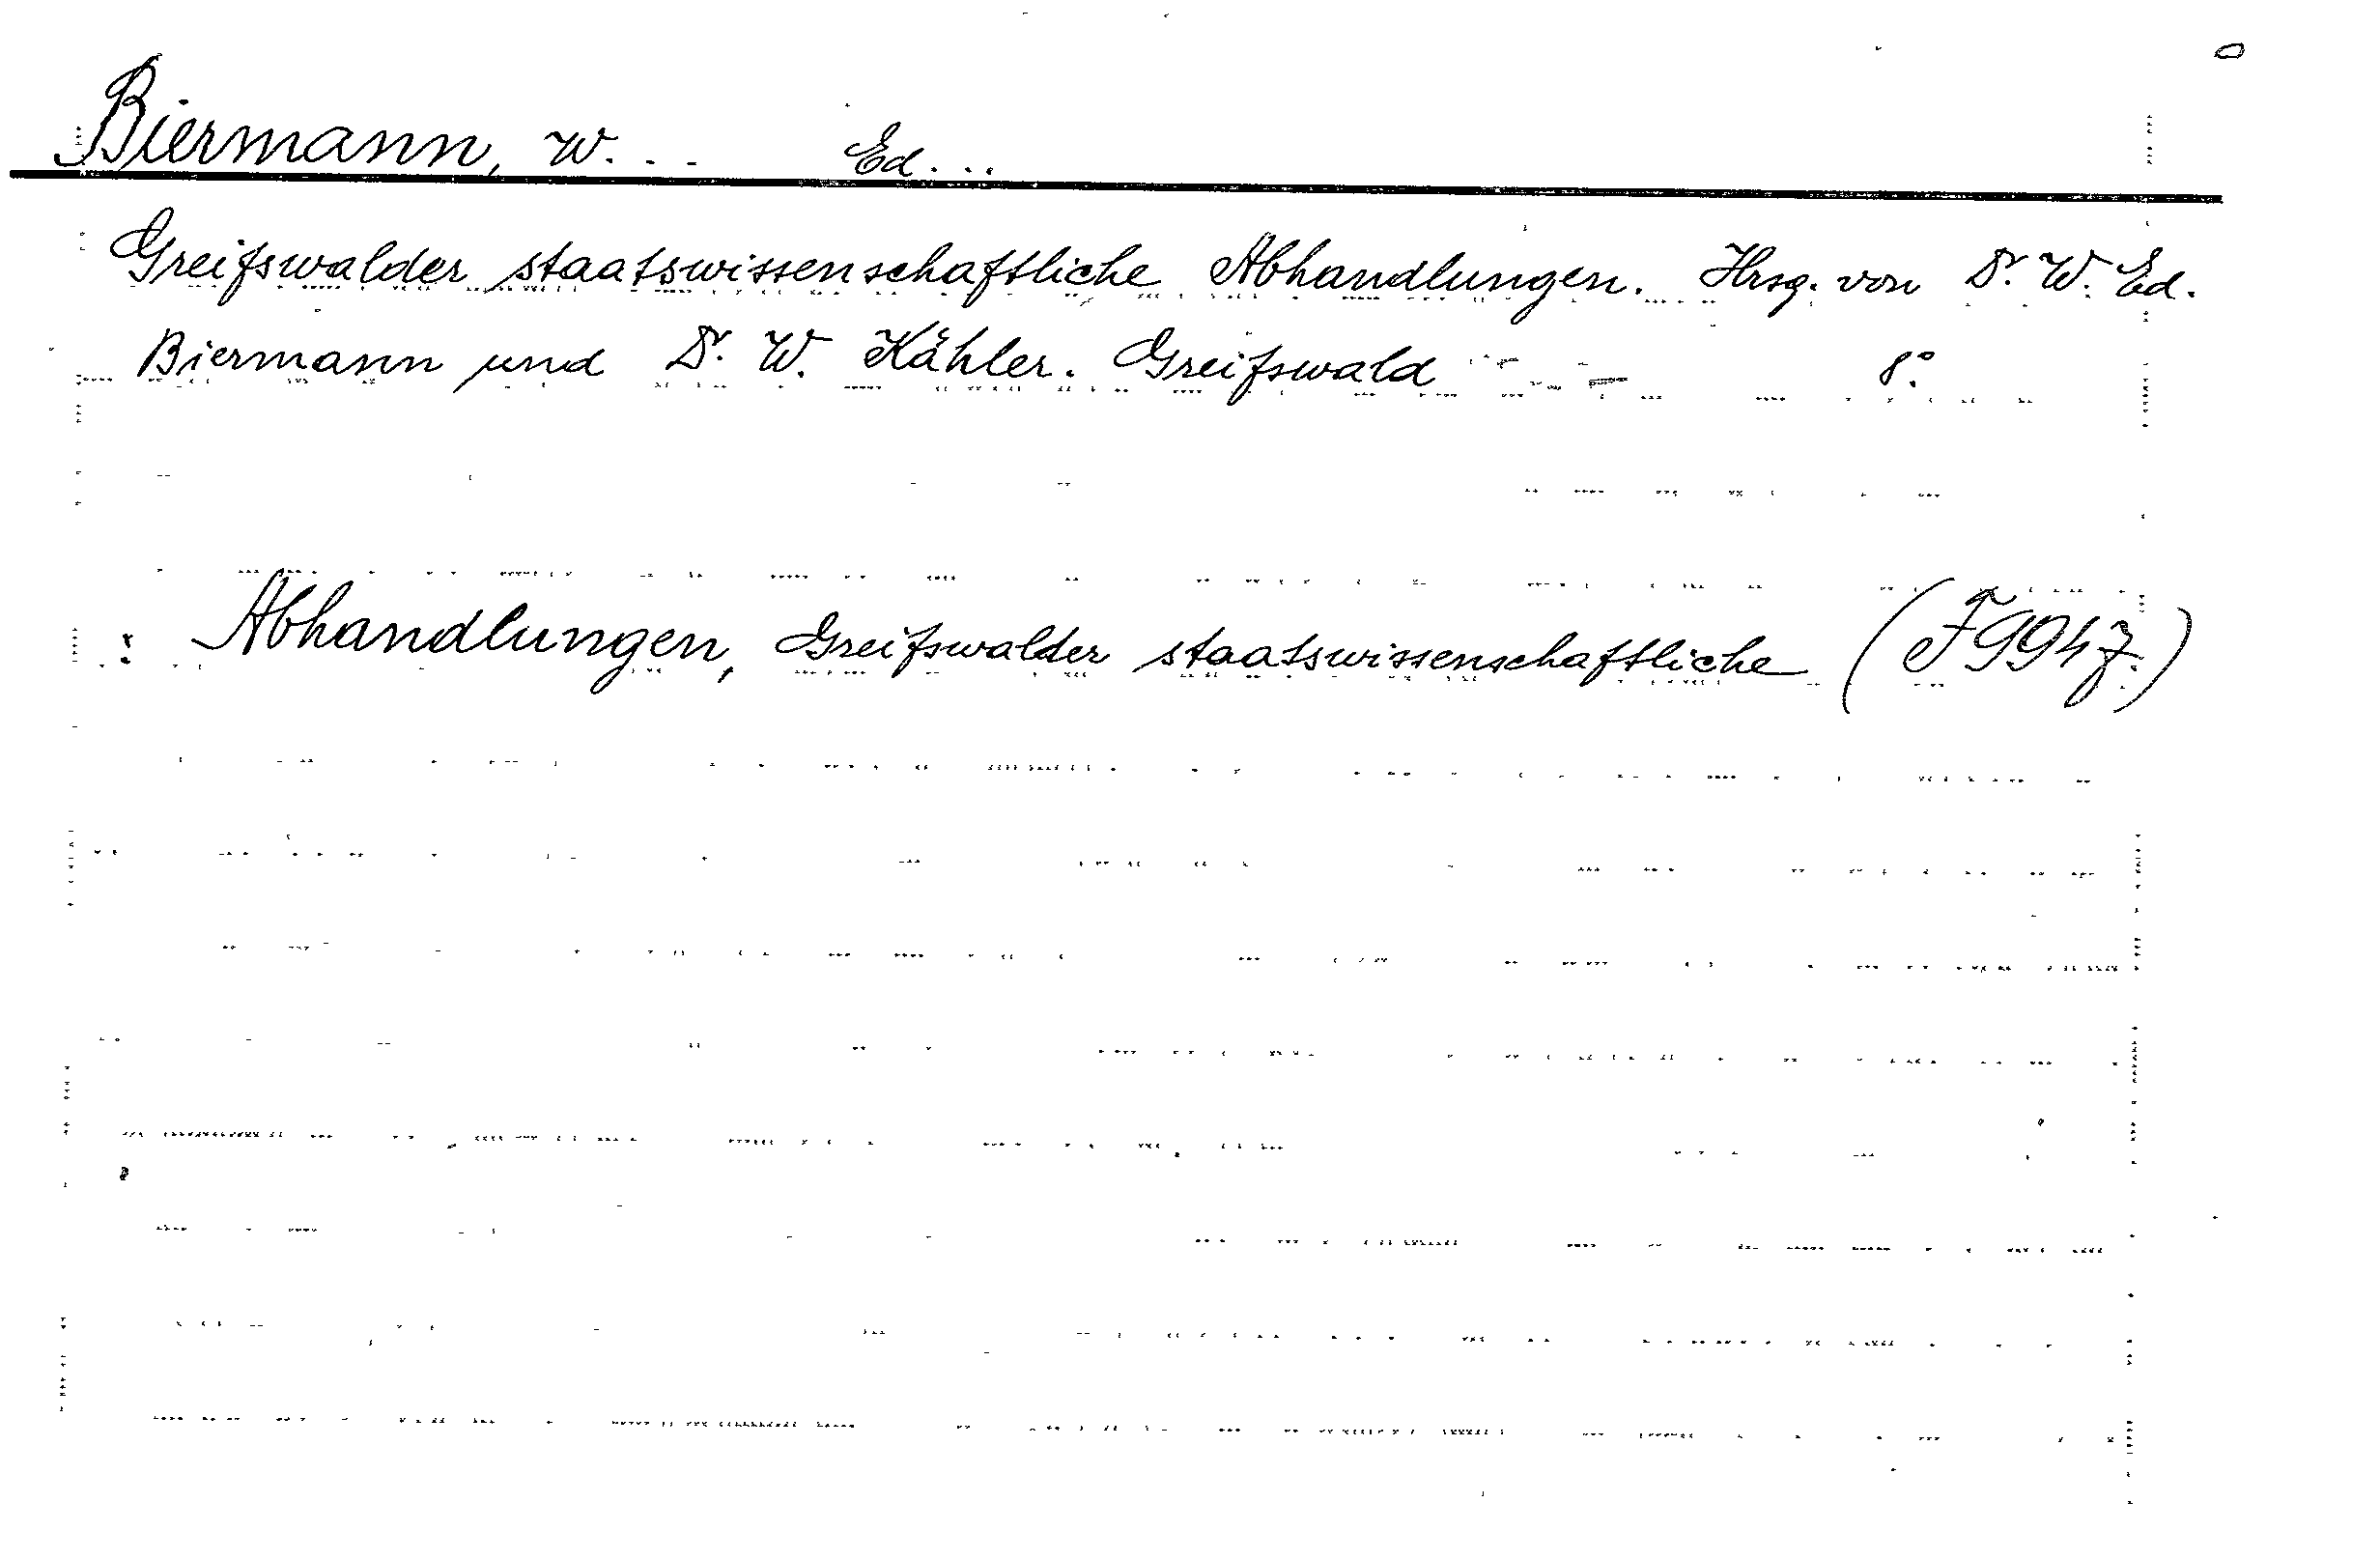 Biermann, W... Ed...
Greifswalder staatswissenschaftliche Abhandlungen. Hrsg. von Dr. W. Ed.
Biermann und Dr. W. Kähler. Greifswald 8°.
: Abhandlungen, Greifswalder staatswissenschaftliche (F 994 z.)